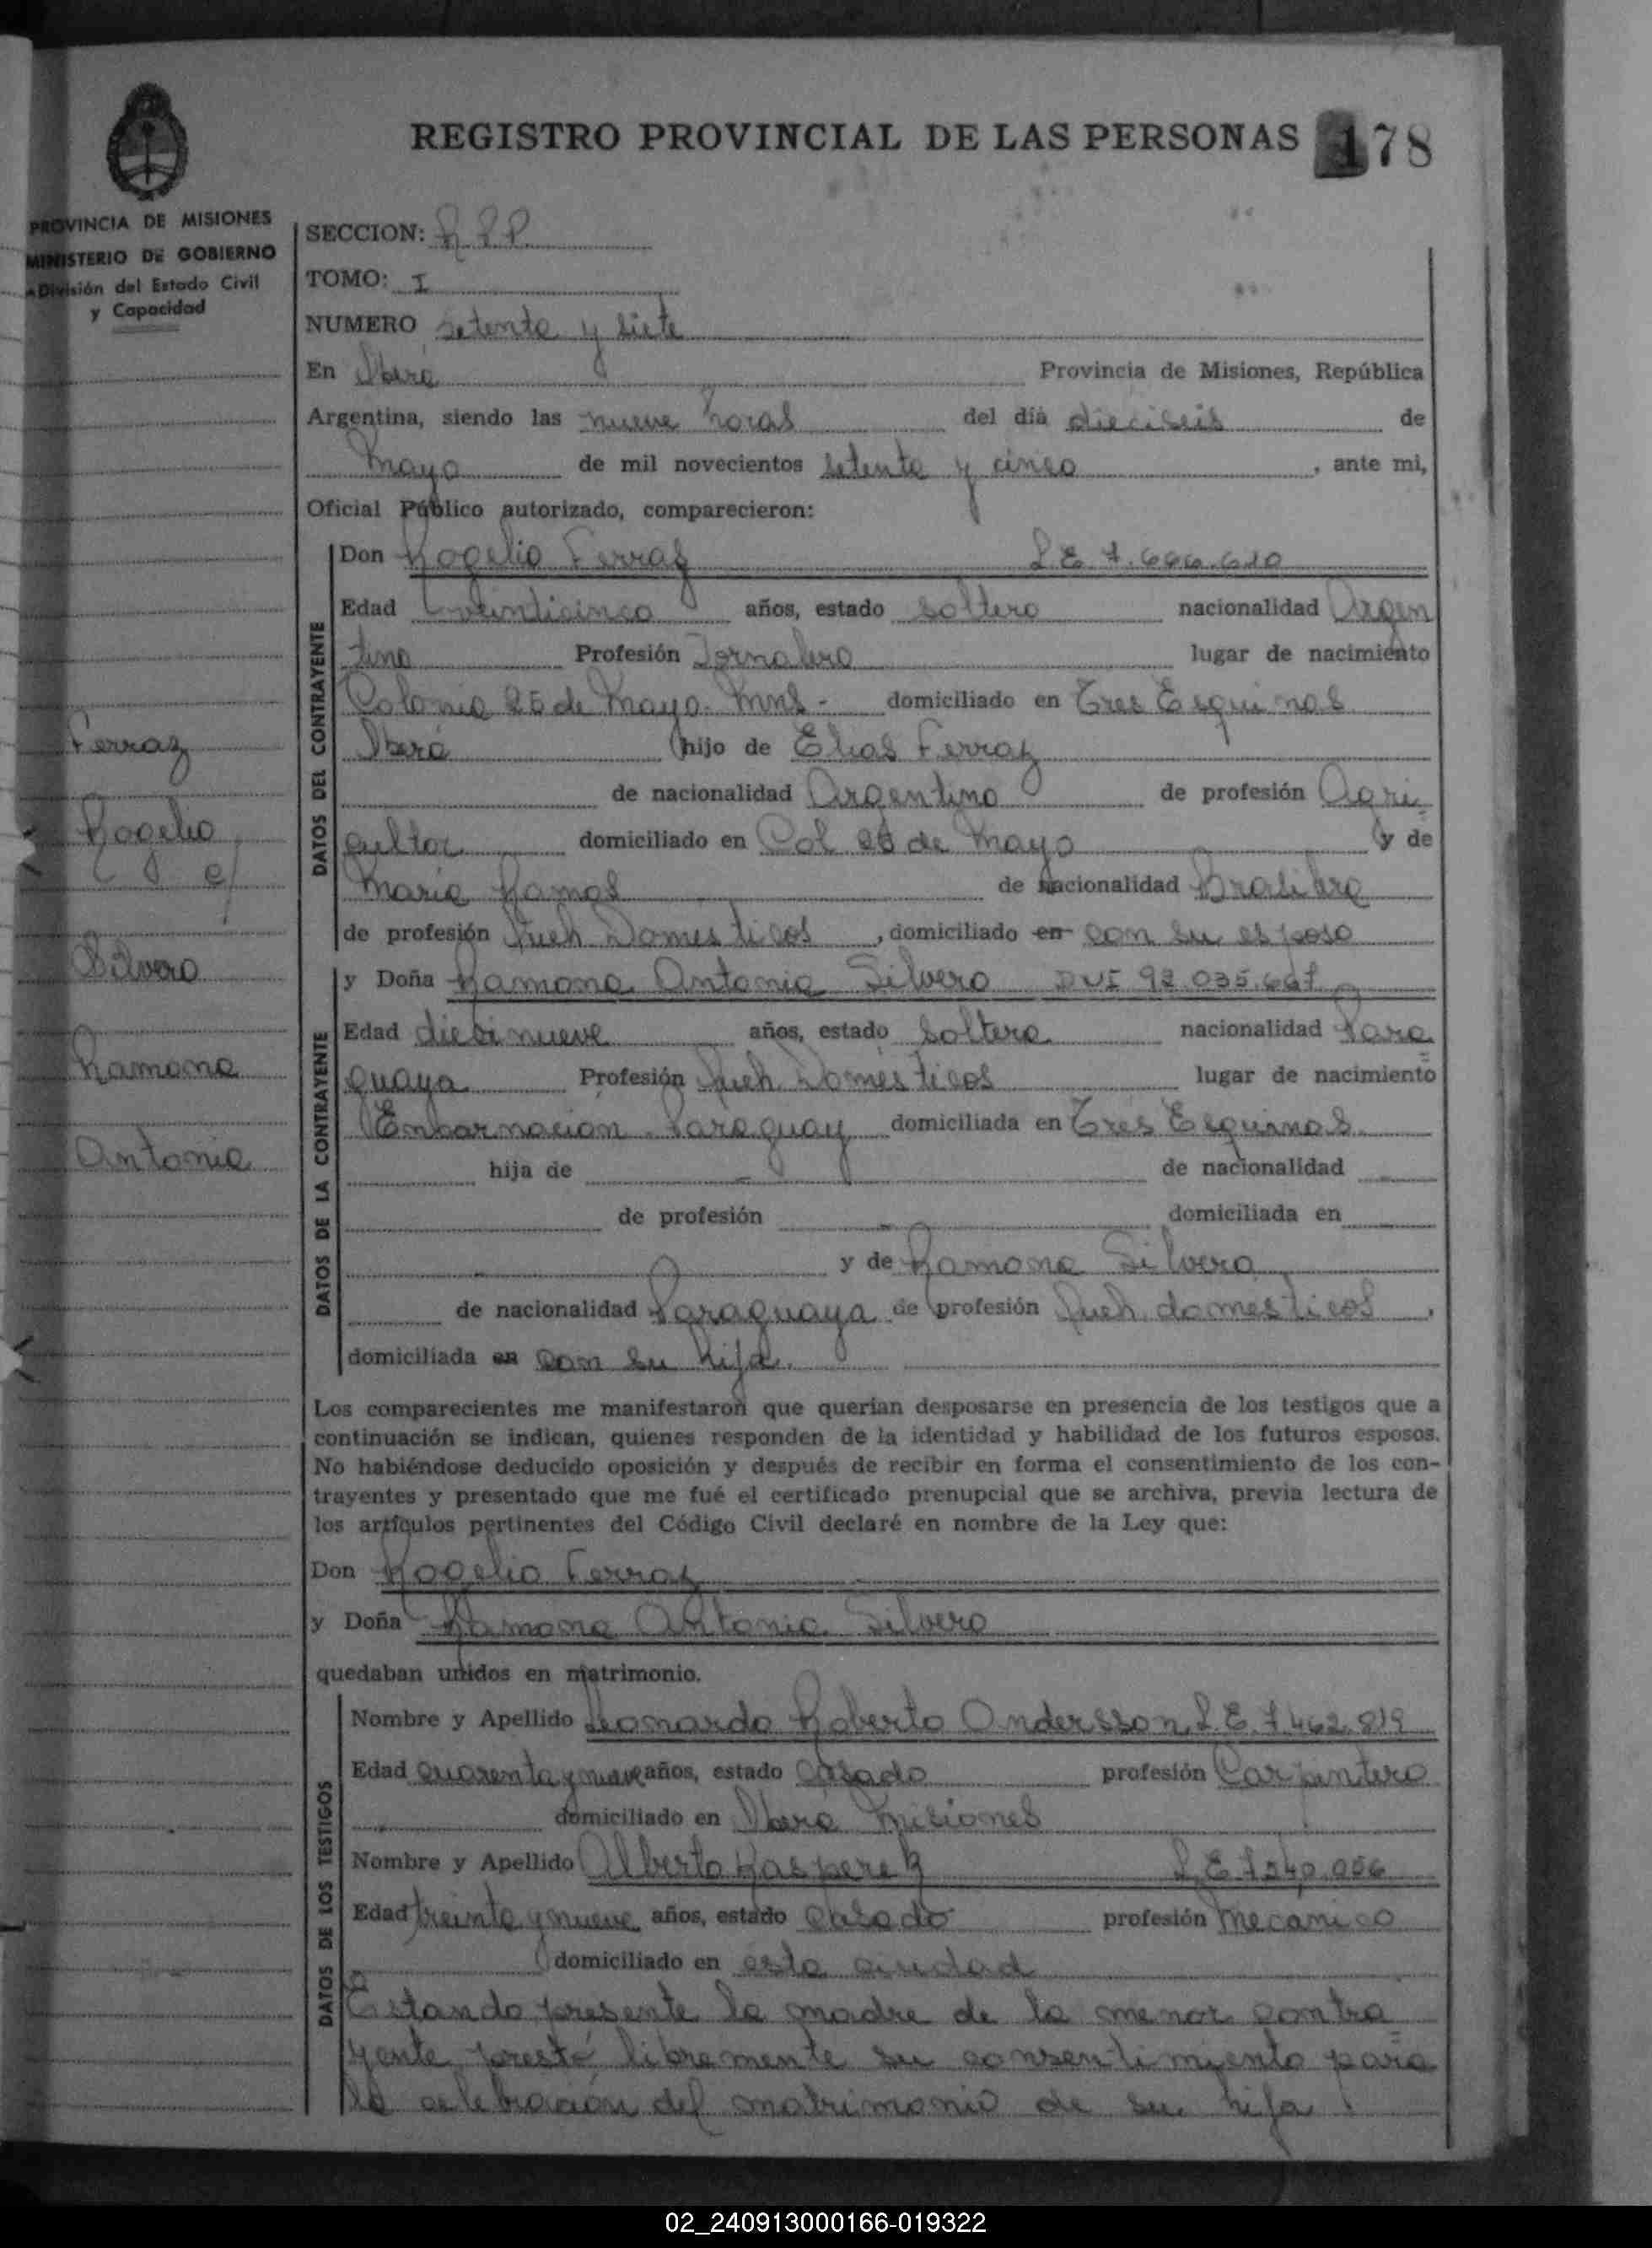 REGISTRO PROVINCIAL DE LAS PERSONAS 178
PROVINCIA DE MISIONES
MINISTERIO DE GOBIERNO
División del Estado Civil
y Capacidad
SECCION:
TOMO: I
NUMERO setenta y siete
En Oberá Provincia de Misiones, República
Argentina, siendo las nueve horas del día dieciseis de
Mayo de mil novecientos setenta y cinco, ante mi,
Oficial Público autorizado, comparecieron:
DATOS DEL CONTRAYENTE
Don Rogelio Ferraz L E 7.666.610
Edad veinticinco años, estado soltero nacionalidad Argen
tino Profesión Jornalero lugar de nacimiento
Colonia 25 de Mayo. Mns - domiciliado en Tres Esquinas
Oberá hijo de Elias Ferraz
de nacionalidad Argentino de profesión Agri
cultor domiciliado en Col 25 de Mayo y de
Maria Ramos de nacionalidad Brasilera
de profesión Queh Domesticos, domiciliado en con su esposo
Ferraz
Rogelio
c/
Silvero
Ramona
Antonia
DATOS DE LA CONTRAYENTE
y Doña Ramona Antonia Silvero DNI 92.035.667
Edad diecinueve años, estado soltera nacionalidad Para
guaya Profesión Queh Domesticos lugar de nacimiento
Encarnación - Paraguay domiciliada en Tres Esquinas
hija de - de nacionalidad
de profesión - domiciliada en
y de Ramona Silvero
de nacionalidad Paraguaya de profesión Queh. domesticos,
domiciliada en con su hija
Los comparecientes me manifestaron que querían desposarse en presencia de los testigos que a
continuación se indican, quienes responden de la identidad y habilidad de los futuros esposos.
No habiéndose deducido oposición y después de recibir en forma el consentimiento de los con-
trayentes y presentado que me fué el certificado prenupcial que se archiva, previa lectura de
los artículos pertinentes del Código Civil declaré en nombre de la Ley que:
Don Rogelio Ferraz
y Doña Ramona Antonia Silvero
quedaban unidos en matrimonio.
DATOS DE LOS TESTIGOS
Nombre y Apellido Leonardo Roberto Andersson L.E. 7.462.819
Edad cuarenta y nueve años, estado casado profesión Carpintero
domiciliado en Oberá Misiones
Nombre y Apellido Alberto Kasperek L.E 7540.056
Edad treinta y nueve años, estado casado profesión Mecanico
domiciliado en esta ciudad
Estando presente la madre de la menor contra
yente prestó libremente su consentimiento para
la celebración del matrimonio de su hija
02_240913000166-019322